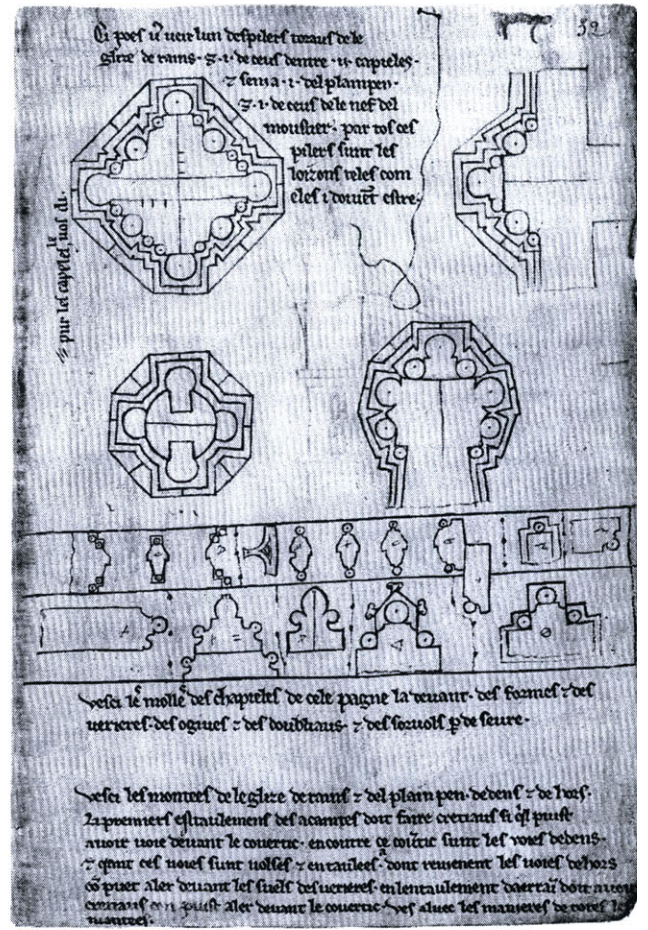 Ci poes vr̄ veir lun des pilers toraus de le
glize de rains · ⁊ · i · de ceus dentre · ii · capieles ·
⁊ sen i a · i · del plain pen ·
⁊ · i · de ceus de le nef del
moustier · par tos ces
pilers sunt les
loizons teles com
eles i doivēt estre ·
32
pur les capeles
vesci le molle des chapieles de cele pagne la devant · des formes ⁊ des
verieres · des ogives ⁊ des doubliaus · ⁊ des sorvols p̱ de seure ·
vesci les montees de le glize de rains ⁊ del plain pen · dedens ⁊ de hors ·
li premiers estaulemens des acaintes doit faire cretiaus si qͥl puist
avoir voie devant le covertic · encontre ce covertic sunt les voies dedens ·
⁊ qᵃnt ces voies sunt volses ⁊ entaulees · dont revienent les voies dehors
cō puet aler devant les suels des verieres · en lentaulement daerraī doit avoir
cretiaus con puist aler devant le covertic · ves aluec les manieres de totes les
montees ·